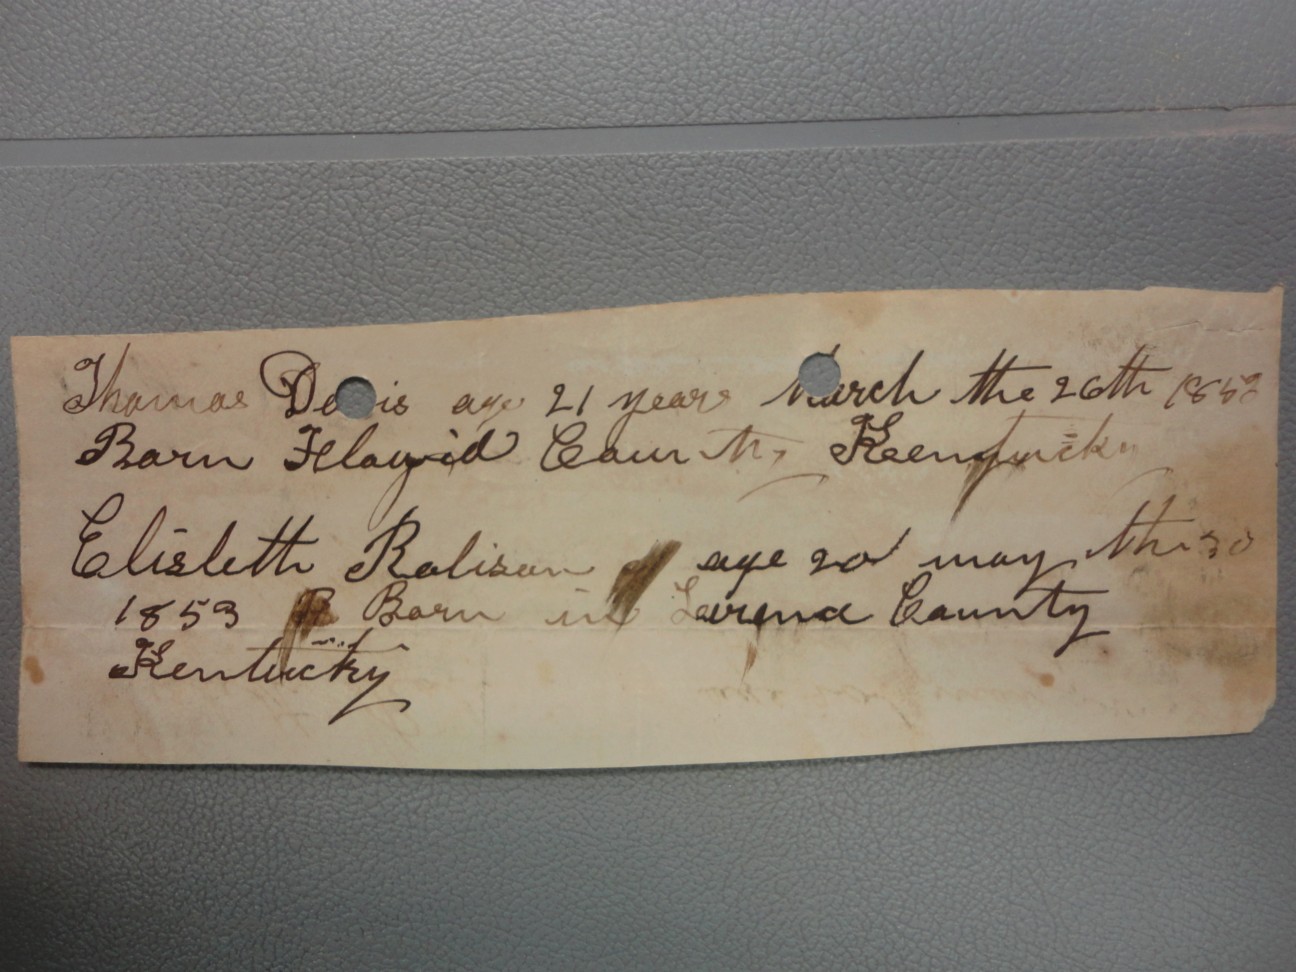 Thomas Da is age 21 years March the 26th 185
Born Floyid County Kentucky
Elisbeth Ralison age 20 may the 30
1853 B Born in Larence County
Kentucky